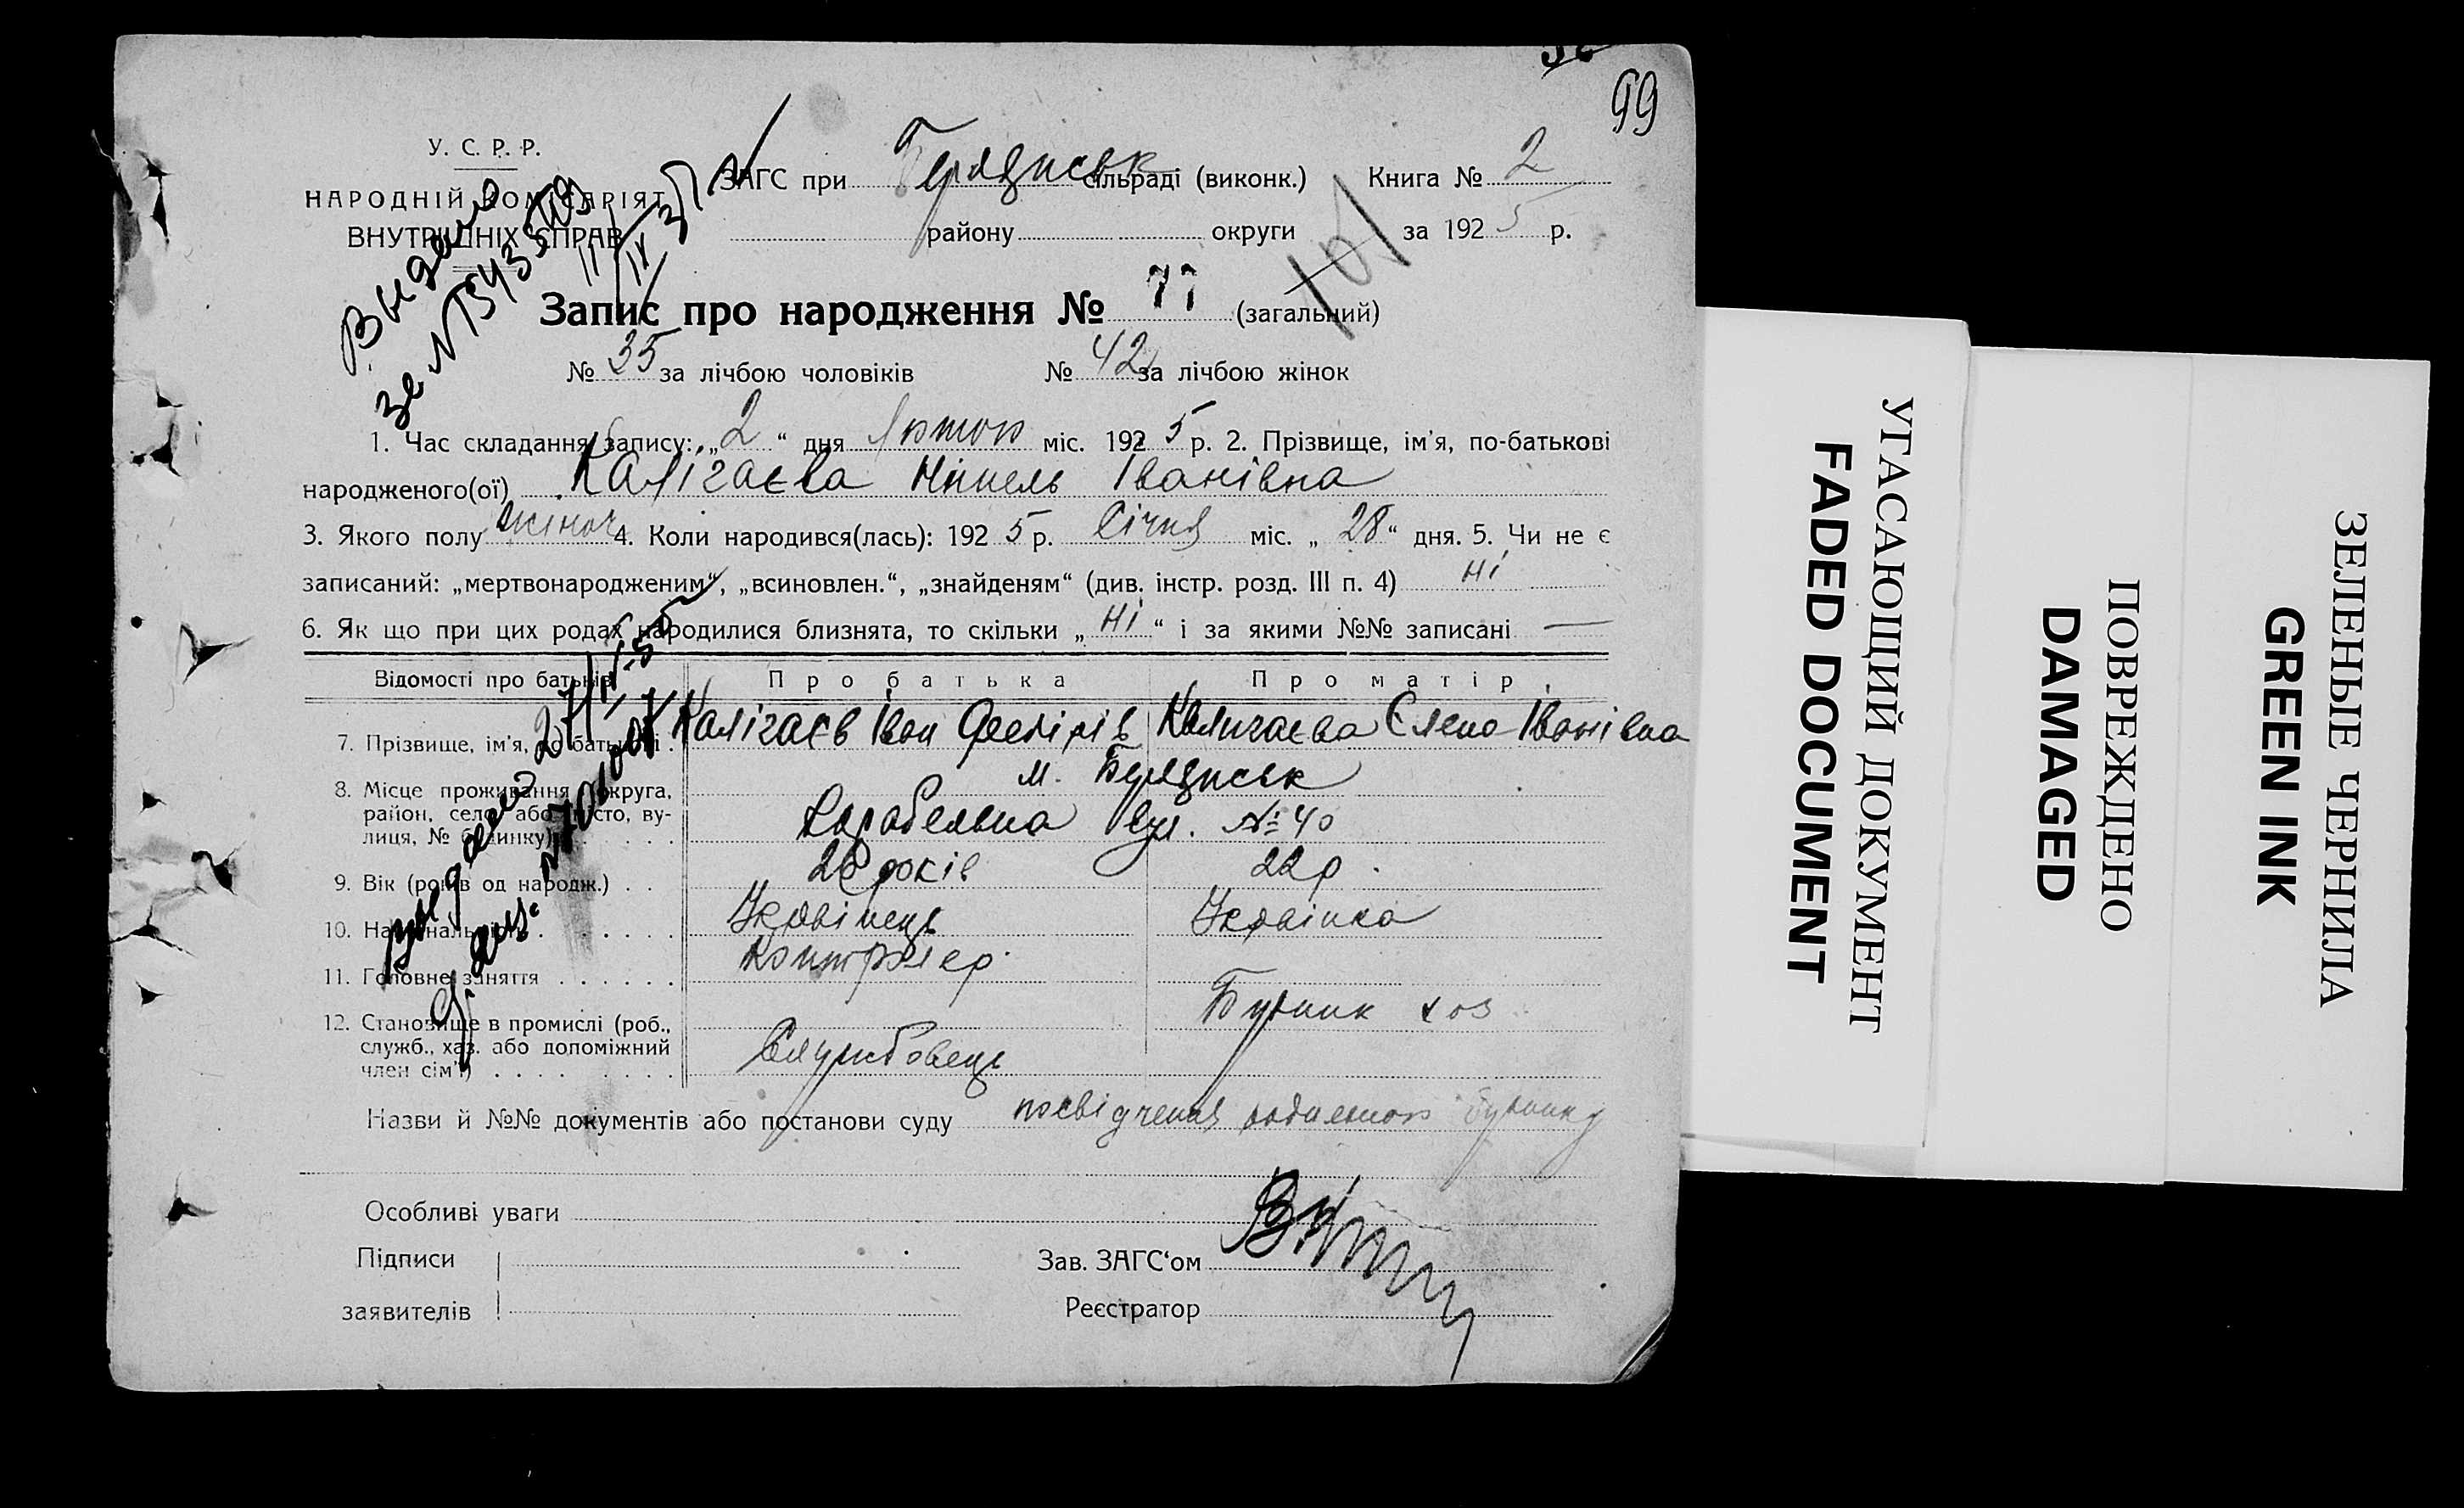 99
У. С. Р. Р.
НАРОДНІЙ КОМІСАРІЯТ
ВНУТРІШНІХ СПРАВ
ЗАГС при Бердянськ сільраді (виконк.) Книга № 2
району округи за 1925 р.
101
Выдано
Запис про народження № 77 (загальний)
№ 35 за лічбою чоловіків № 42 за лічбою жінок
1. Час складання запису: „2“ дня Лютого міс. 1925 р. 2. Прізвище, ім’я, по-батькові
народженого(ої) Калігаєва Нінель Іванівна
3. Якого полу жіноч 4. Коли народився(лась): 1925 р. Січня міс. „28“ дня. 5. Чи не є
записаний: „мертвонародженим“, „всиновлен.“, „знайденям“ (див. інстр. розд. III п. 4) ні
6. Як що при цих родах народилися близнята, то скільки „ні“ і за якими №№ записані —
Відомості про батьків Про батька Про матір
7. Прізвище, ім’я, по батькові . Калігаєв Іван Калигаєва Єлена Іванівна
8. Місце проживання (округа, район, село або місто, вулиця, № будинку) м. Бердянськ
Карабельна вул. № 40
9. Вік (років од народж.) . . років 22 р.
10. Національність . . . . . . Українець Українка
11. Головне заняття . . . . . . Контролер
12. Становище в промислі (роб., служб., хаз. або допоміжний член сім’ї) . . . . Службовець
Назви й №№ документів або постанови суду посвідчення родильного будинку
Особливі уваги
Підписи
заявителів
Зав. ЗАГС‘ом
Реєстратор
УГАСАЮЩИЙ ДОКУМЕНТ
FADED DOCUMENT
ПОВРЕЖДЕНО
DAMAGED
ЗЕЛЕНЫЕ ЧЕРНИЛА
GREEN INK